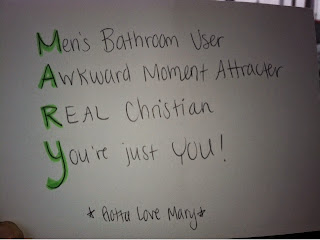 Men's Bathroom User
Awkward Moment Attracter
REAL Christian
You're just YOU!
* Gotta Love Mary *